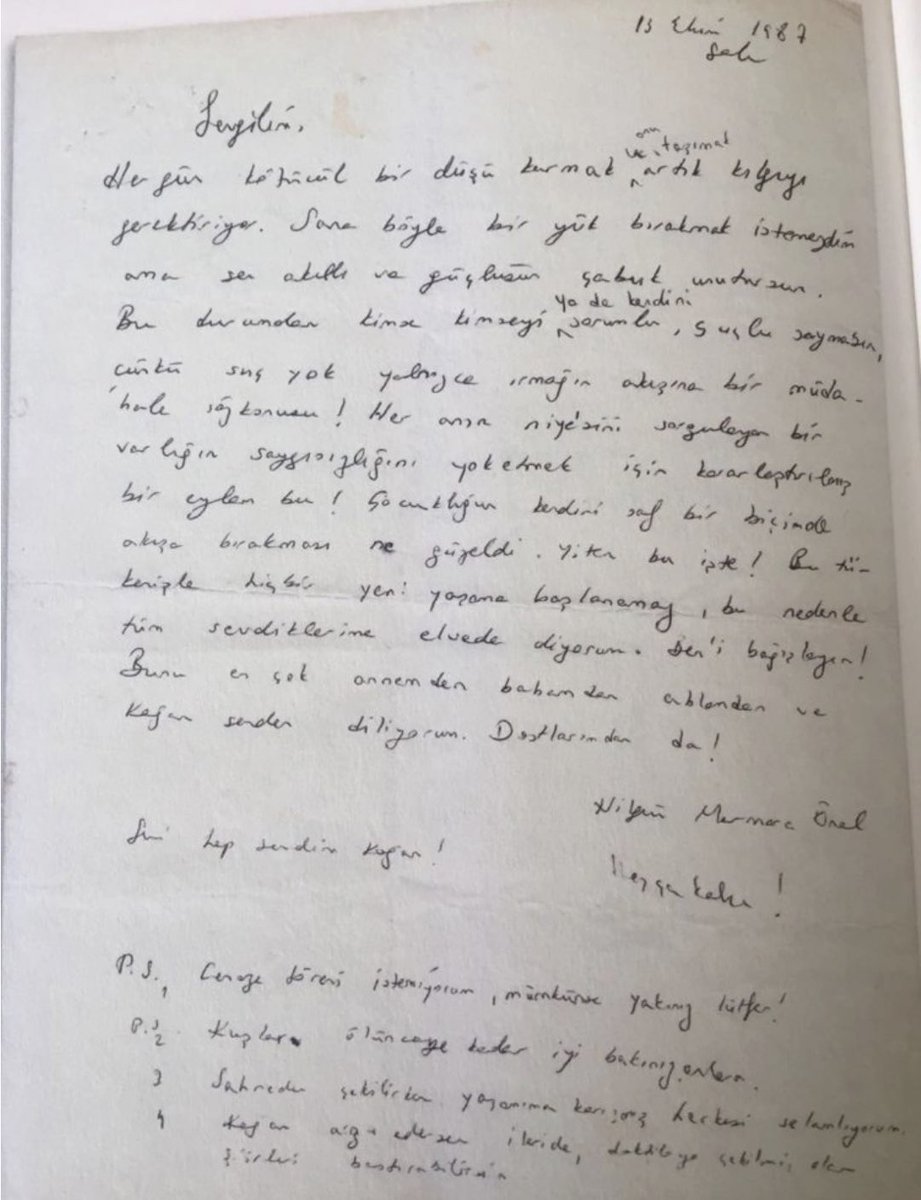 13 Ekim 1987
Salı
Sevgilim,
Her gün kötücül bir düşü kurmak ve onu taşımak artık kılgıyı
gerektiriyor. Sana böyle bir yük bırakmak istemezdim
ama sen akıllı ve güçlüsün çabuk unutursun.
Bu durumdan kimse kimseyi ya da kendini sorumlu, suçlu saymasın,
çünkü suç yok yalnızca ırmağın akışına bir müda-
hale sözkonusu! Her anın niye'sini sorgulayan bir
varlığın saygısızlığını yoketmek için kararlaştırılmış
bir eylem bu! Çocukluğun kendini saf bir biçimde
akışa bırakması ne güzeldi. Yiten bu işte! Bu tü-
kenişle hiçbir yeni yaşama başlanamaz, bu nedenle
tüm sevdiklerime elveda diyorum. Ben'i bağışlayın!
Bunu en çok annemden babamdan ablamdan ve
Kağan senden diliyorum. Dostlarımdan da!
Nilgün Marmara Önal
Seni hep sevdim Kağan!
Hoşça kalın!
P.S.1 Cenaze töreni istemiyorum, mümkünse yakınız lütfen!
P.S.2 Kuşlara ölünceye kadar iyi bakınız onlara.
3 Sahneden çekilirken yaşamıma karışmış herkesi selamlıyorum.
4 Kağan arzu edersen ileride, daktiloya çekilmiş olan
şiirleri bastırabilirsin